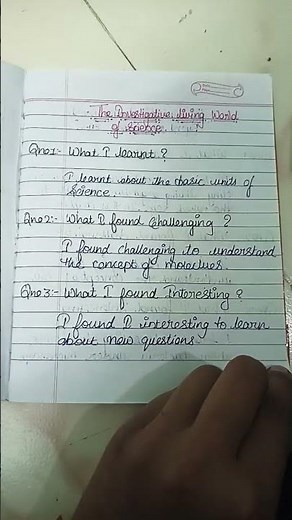 The Investigative living World
of Science.
Qno1:- What I learnt ?
I learnt about the basic units of
Science.
Qno2:- What I found Challenging ?
I found challenging to understand
the concept of molecules.
Qno3:- What I found Interesting ?
I found I interesting to learn
about new questions.